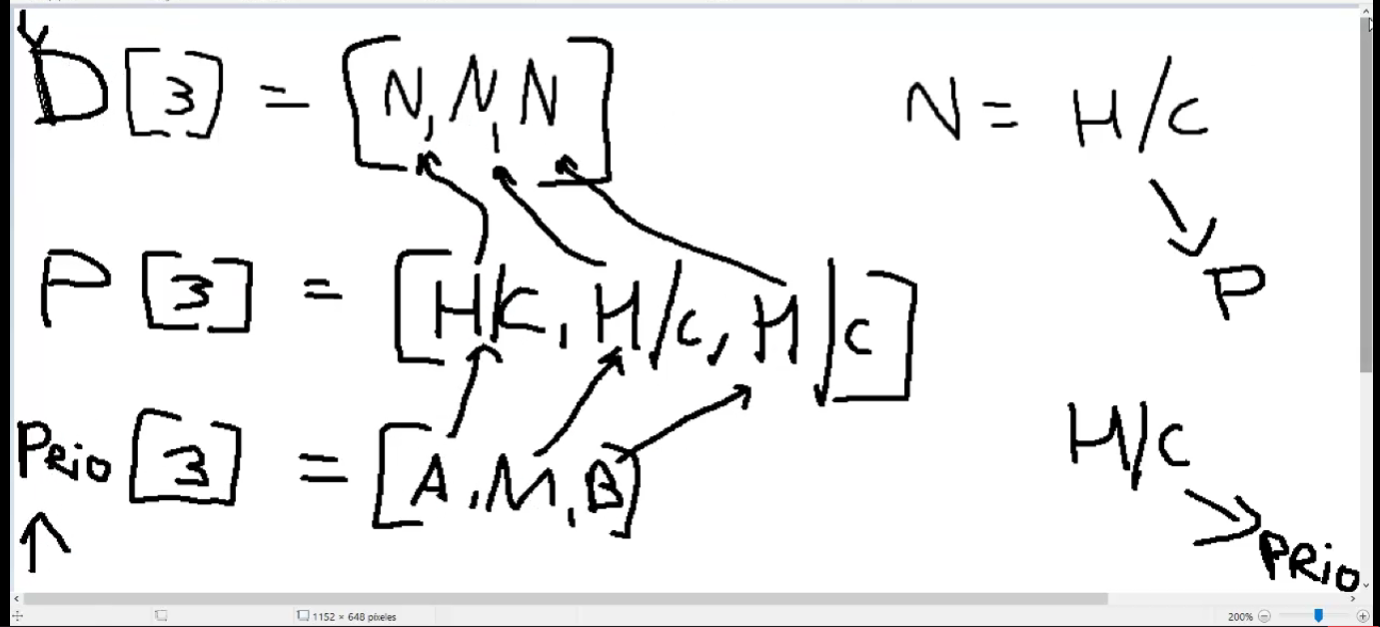 D[3] = [N, N, N]
N = H/C
P[3] = [H/C, H/C, H/C]
P
Prio[3] = [A, M, B]
H/C
PRio
1152 × 648 píxeles
200%